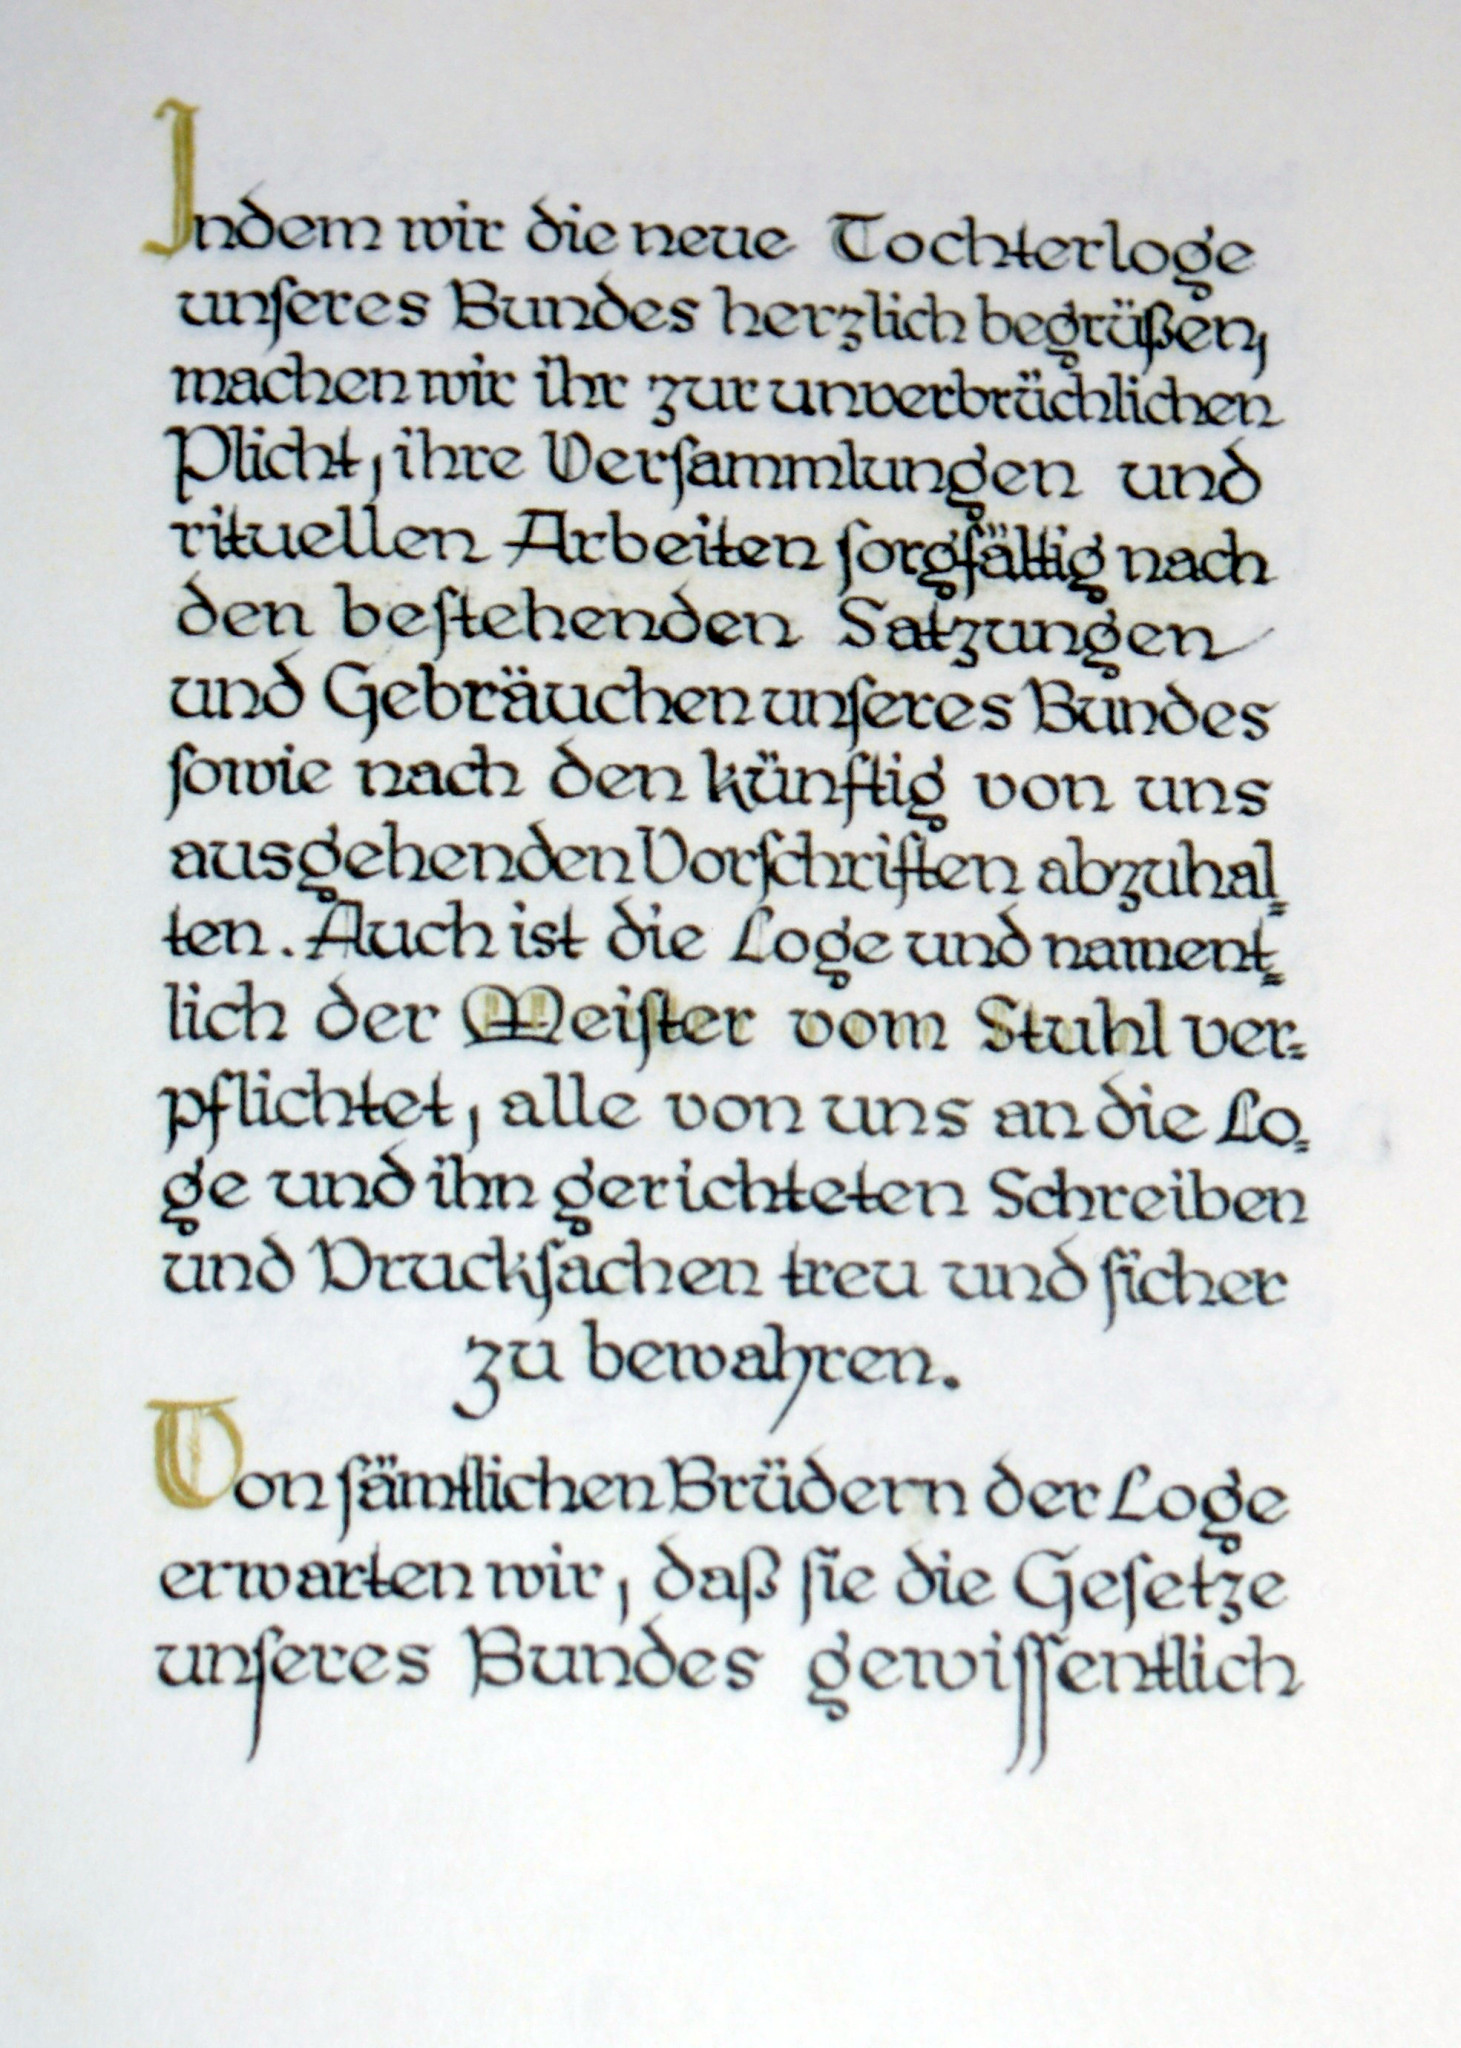 Indem wir die neue Tochterloge
unſeres Bundes herzlich begrüßen,
machen wir ihr zur unverbrüchlichen
Plicht, ihre Verſammlungen und
rituellen Arbeiten ſorgfältig nach
den beſtehenden Satzungen
und Gebräuchen unſeres Bundes
ſowie nach den künftig von uns
ausgehenden Vorſchriften abzuhal=
ten. Auch ist die Loge und nament=
lich der Meiſter vom Stuhl ver=
pflichtet, alle von uns an die Lo=
ge und ihn gerichteten Schreiben
und Druckſachen treu und ſicher
zu bewahren.
Von ſämtlichen Brüdern der Loge
erwarten wir, daß ſie die Geſetze
unſeres Bundes gewiſſentlich